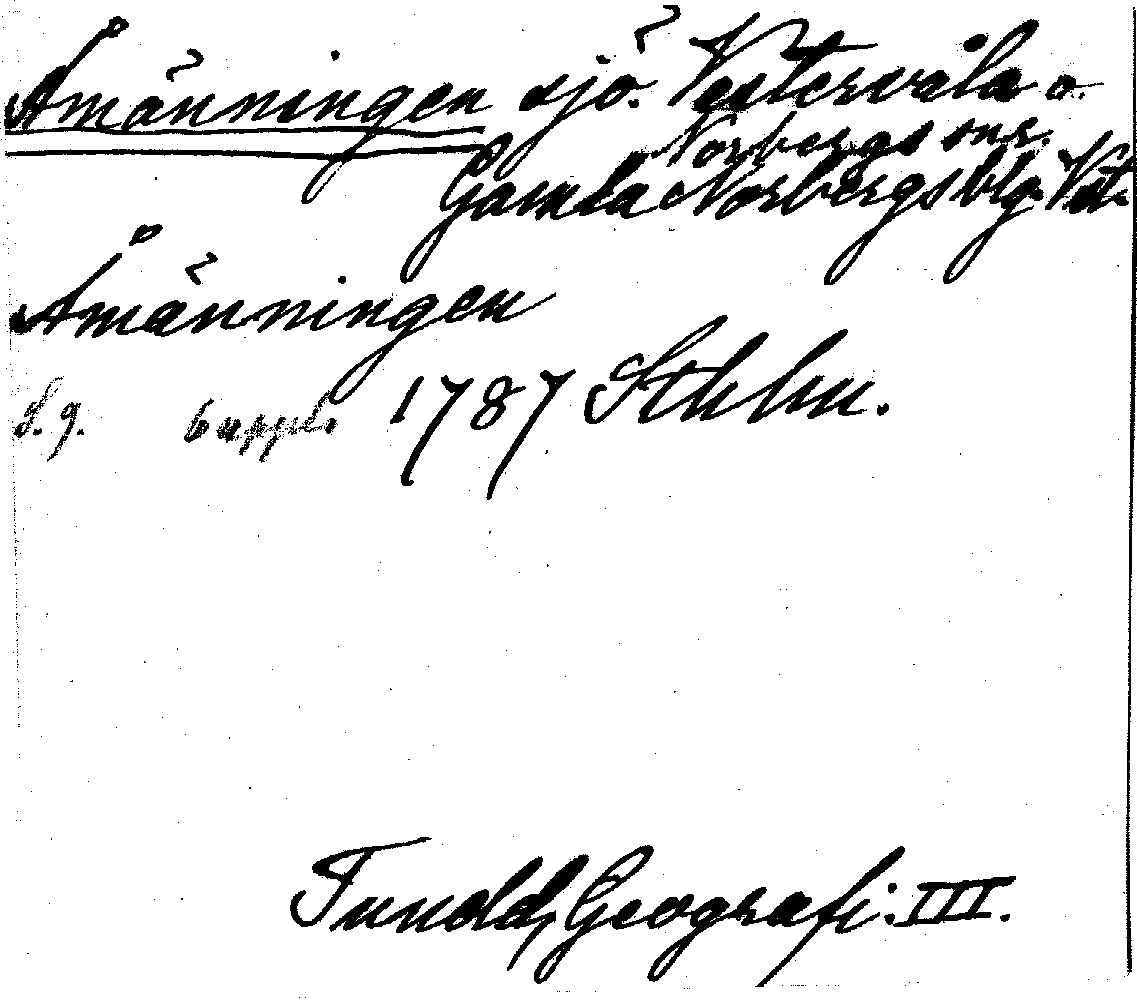 Åmänningen sjö. Vestervåla o.
Norbergs snr.
Gamla Norbergs blg. Vstm.
Åmänningen
S. 9. 6 uppl. 1787 Sthlm.
Tuneld, Geografi. III.